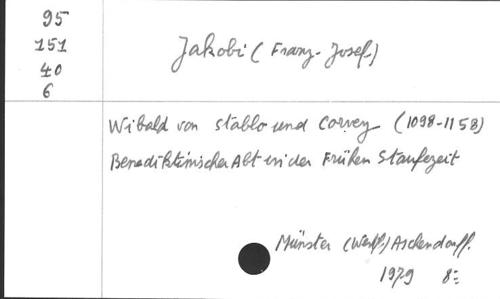 95
151
40
6
Jakobi (Franz-Josef)
Wibald von Stablo und Corvey (1098-1158)
Benediktinischer Abt in der Frühen Staufezeit
Münster (Westf.) Aschendorff.
1979 8=